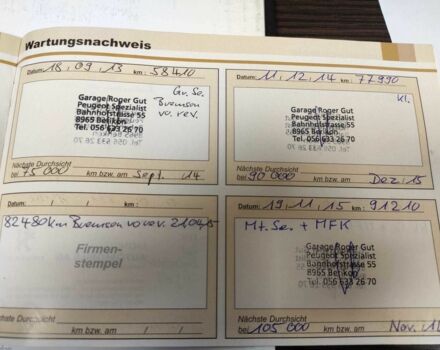 Wartungsnachweis
Datum: 18, 09, 13 km: 58410
Gr. Se.
Bremsen
vo. rev.
Garage Roger Gut
Peugeot Spezialist
Bahnhofstrasse 55
8965 Berikon
Tel. 056 633 26 70
Nächste Durchsicht
bei 75 000 km bzw. am Sept. / 14
Datum: 11, 12, 14 km: 77990
Kl.
Garage Roger Gut
Peugeot Spezialist
Bahnhofstrasse 55
8965 Berikon
Tel. 056 633 26 70
Nächste Durchsicht
bei 90 000 km bzw. am Dez. 15
Datum: / / km:
82480km Bremsen vo rev. 21.04.15
Firmen-
stempel
Nächste Durchsicht
bei km bzw. am / /
Datum: 19, 11, 15 km: 91210
Mt. Ser. + MFK
Garage Roger Gut
Peugeot Spezialist
Bahnhofstrasse 55
8965 Berikon
Tel. 056 633 26 70
Nächste Durchsicht
bei 105 000 km bzw. am Nov.